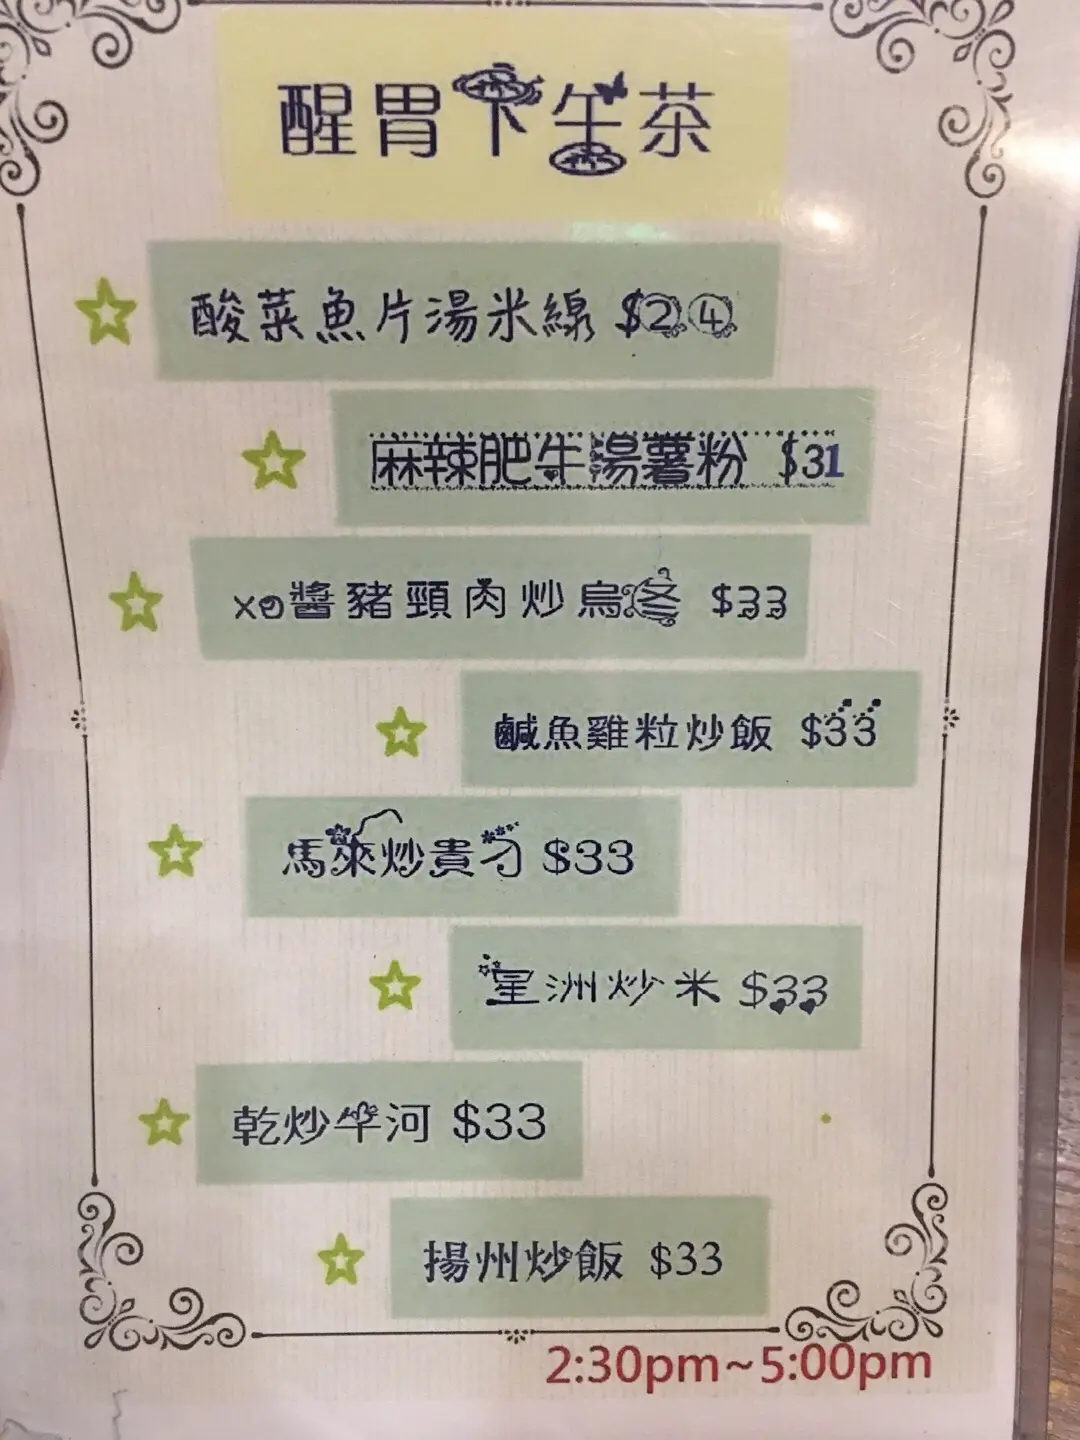 醒胃下午茶
酸菜魚片湯米線 $24
麻辣肥牛湯薯粉 $31
xo醬豬頸肉炒烏冬 $33
鹹魚雞粒炒飯 $33
馬來炒貴刁 $33
星洲炒米 $33
乾炒牛河 $33
揚州炒飯 $33
2:30pm~5:00pm